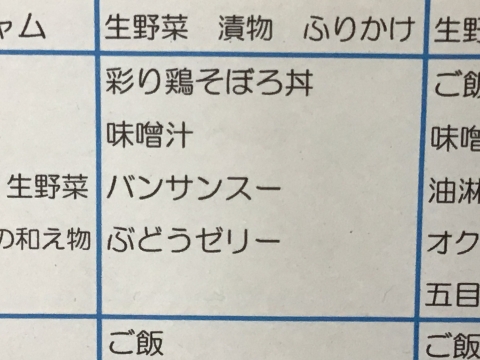 ャム
生野菜 漬物 ふりかけ
生野
彩り鶏そぼろ丼
ご飯
味噌汁
味噌
生野菜
バンサンスー
油淋
の和え物
ぶどうゼリー
オク
五目
ご飯
ご飯